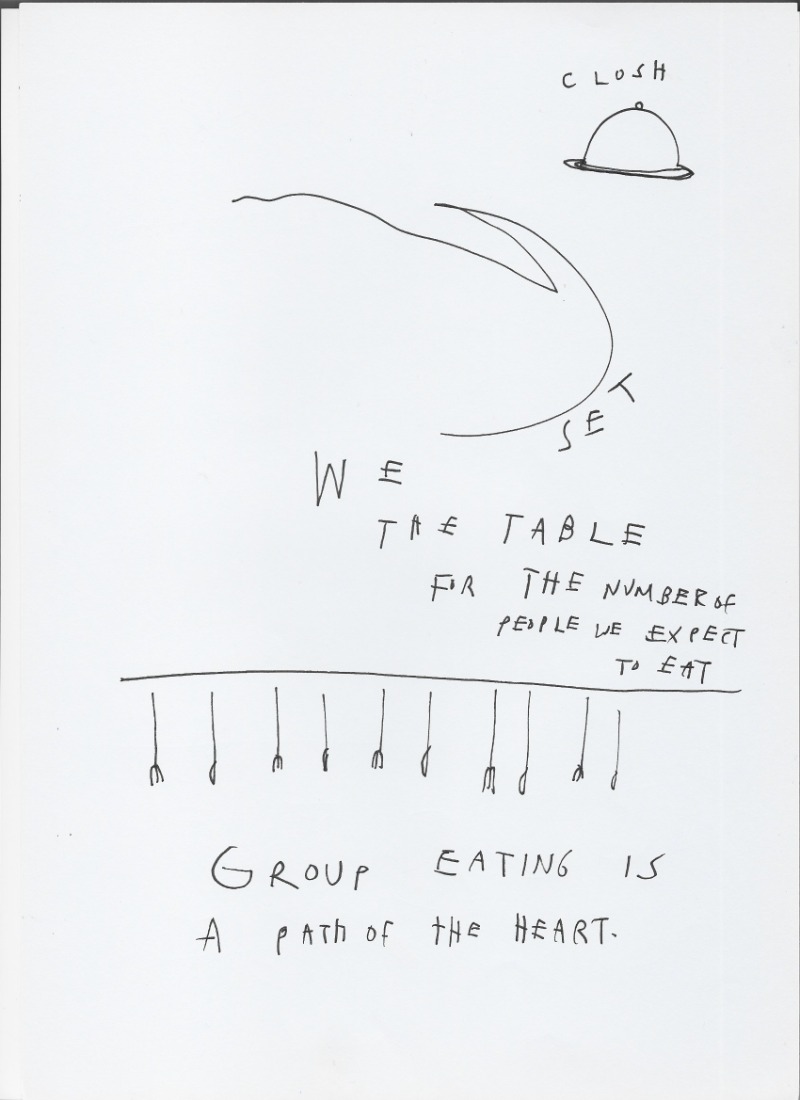 CLOSH
SET
WE
THE TABLE
FOR THE NUMBER OF
PEOPLE WE EXPECT
TO EAT
GROUP EATING IS
A PATH OF THE HEART.